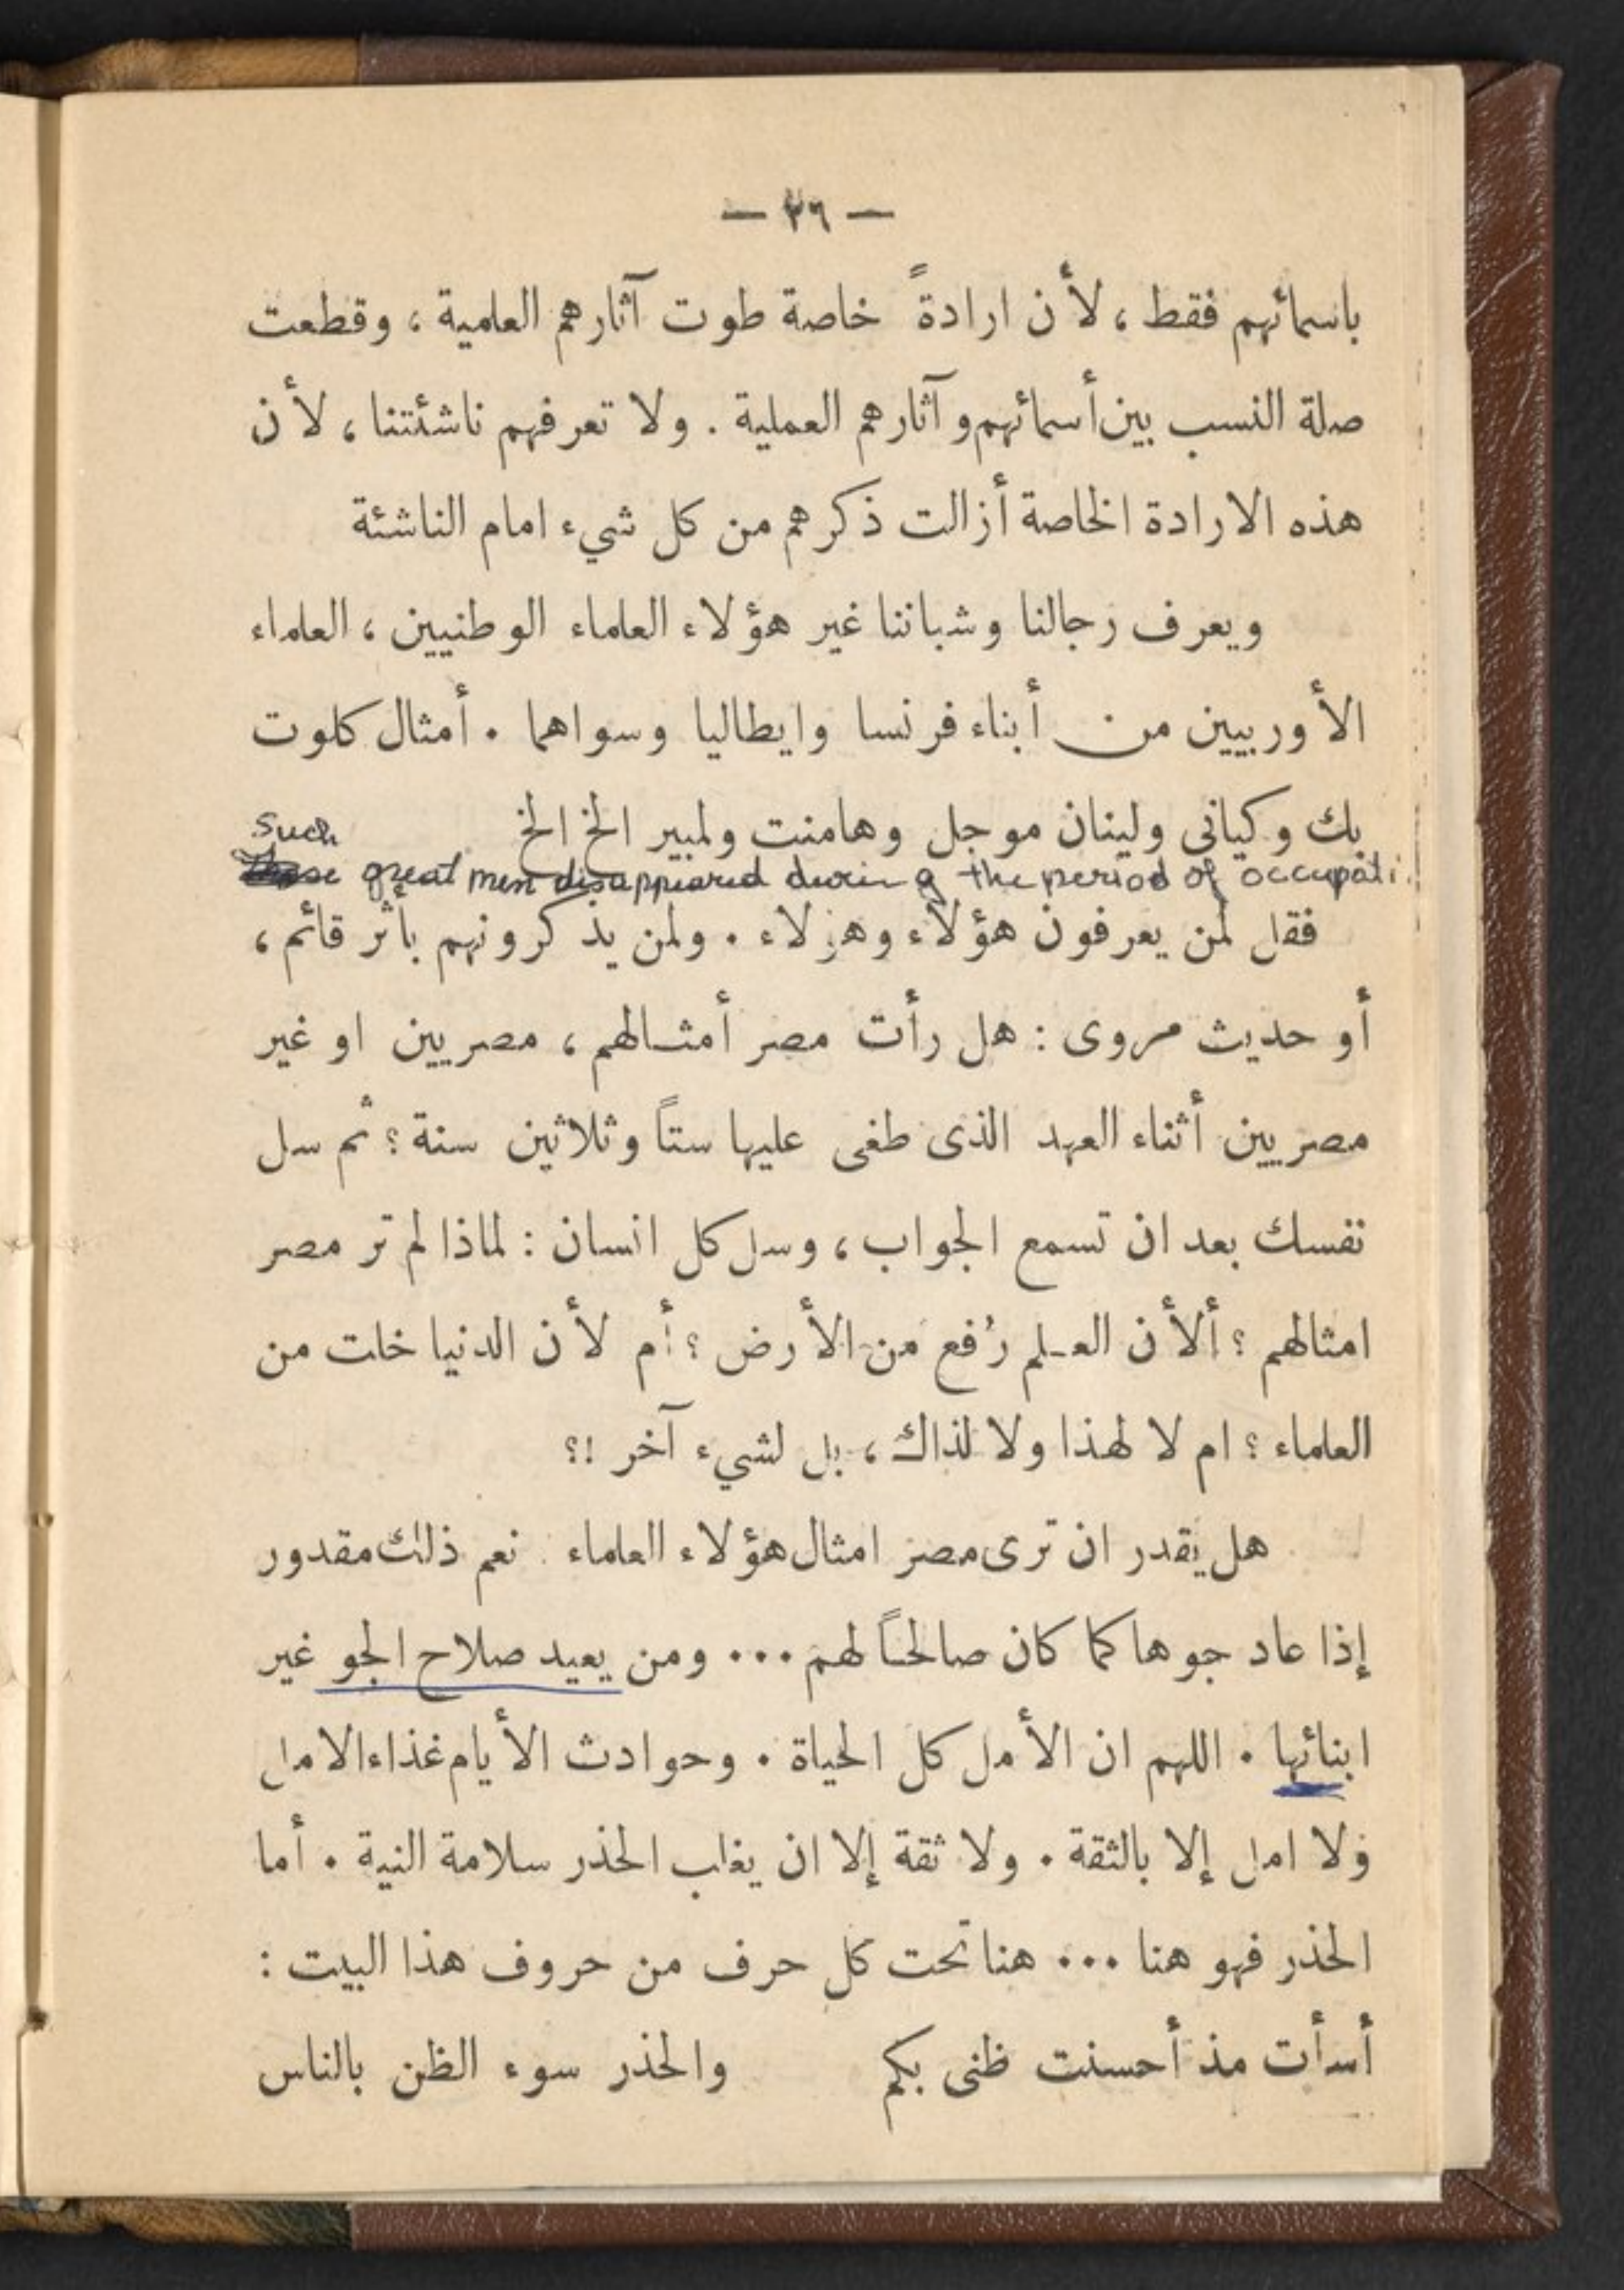 — ٢٦ —
باسمائهم فقط ، لأن ارادةً خاصة طوت آثارهم العلمية ، وقطعت
صلة النسب بين أسمائهم وآثارهم العملية . ولا تعرفهم ناشئتنا ، لأن
هذه الارادة الخاصة أزالت ذكرهم من كل شيء امام الناشئة
ويعرف رجالنا وشباننا غير هؤلاء العلماء الوطنيين ، العلماء
الأوربيين من أبناء فرنسا وايطاليا وسواهما . أمثال كلوت
بك وكيانى ولينان موجل وهامنت ولمبير الخ الخ
Such
great men disappeared during the period of occupati
فقل لمن يعرفون هؤلاء وهؤلاء . ولمن يذكرونهم بأثر قائم ،
أو حديث مروى : هل رأت مصر أمثالهم ، مصريين او غير
مصريين أثناء العهد الذى طغى عليها ستاً وثلاثين سنة ؟ ثم سل
نفسك بعد ان تسمع الجواب ، وسل كل انسان : لماذا لم تر مصر
امثالهم ؟ ألأن العلم رُفع من الأرض ؟ أم لأن الدنيا خلت من
العلماء ؟ ام لا لهذا ولا لذاك ، بل لشيء آخر !؟
هل يقدر ان ترى مصر امثال هؤلاء العلماء . نعم ذلك مقدور
إذا عاد جوها كما كان صالحاً لهم ... ومن يعيد صلاح الجو غير
ابنائها . اللهم ان الأمل كل الحياة . وحوادث الأيام غذاء الامل
ولا امل إلا بالثقة . ولا ثقة إلا ان يغلب الحذر سلامة النية . أما
الحذر فهو هنا ... هنا تحت كل حرف من حروف هذا البيت :
أسأت مذ أحسنت ظنى بكم والحذر سوء الظن بالناس